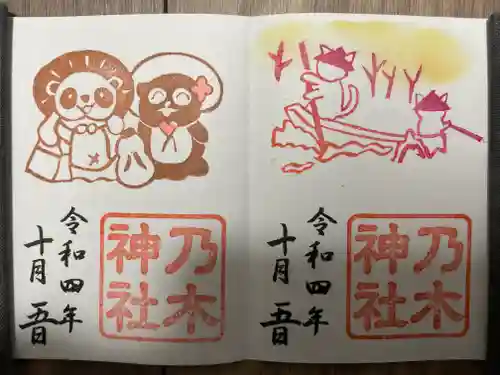 令和四年
十月五日
乃木
神社
令和四年
十月五日
乃木
神社